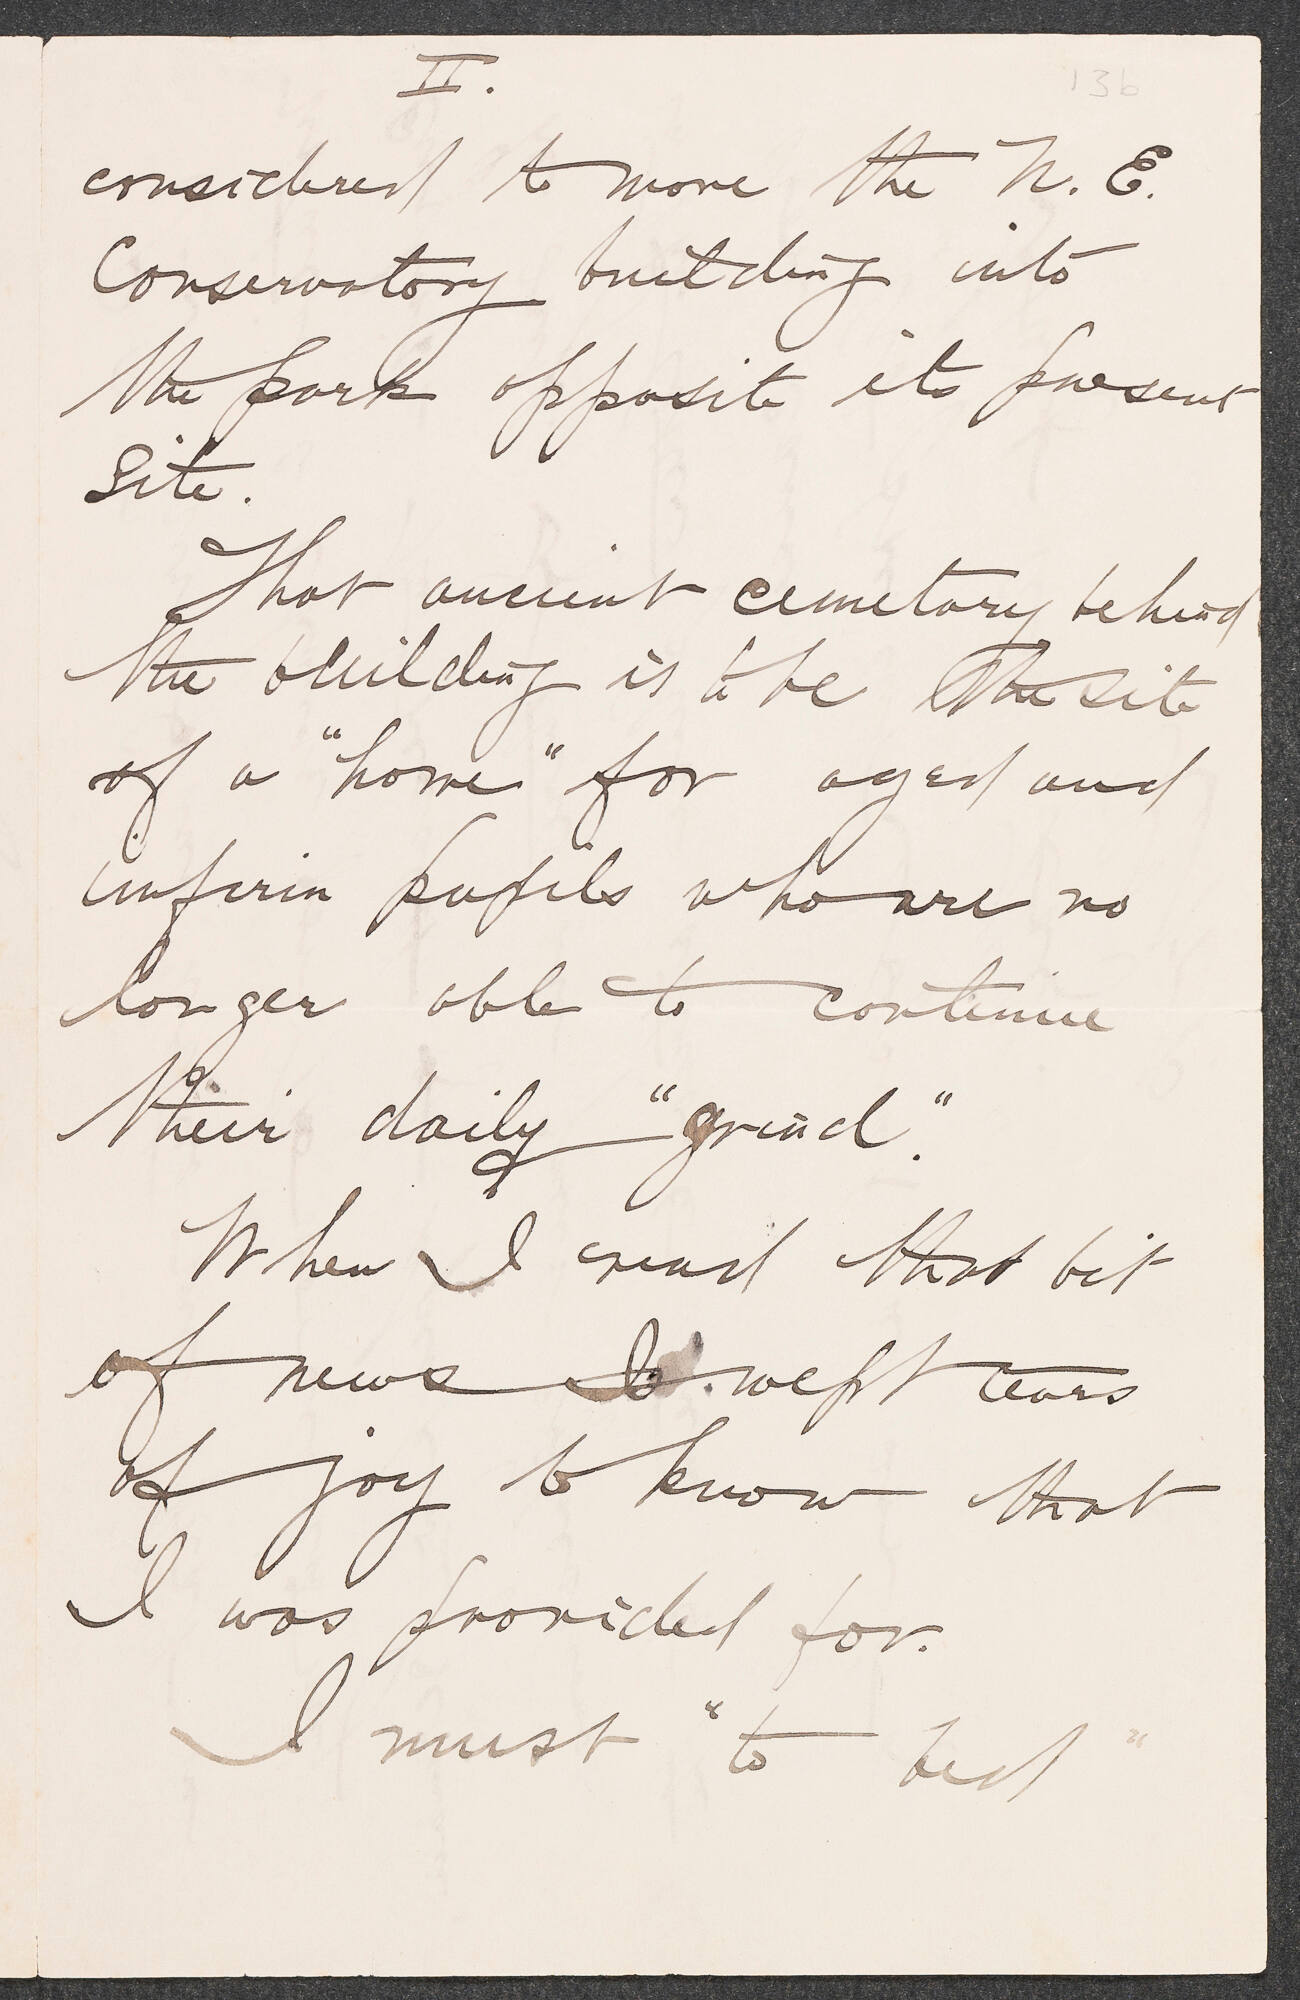 II.
13b
considered to move the N. E.
Conservatory building into
the park opposite its present
Site.
That ancient cemetary behind
the building is to be the site
of a "home" for aged and
infirm pupils who are no
longer able to continue
their daily "grind."
When I read that bit
of news I wept tears
of joy to know that
I was provided for.
I must "to bed"